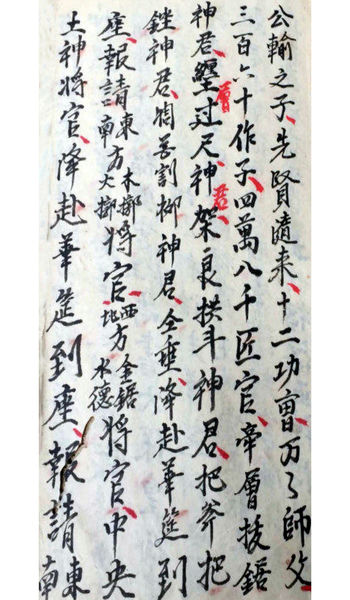 公輸之子先賢隨來十二功曹万々師父
三百六十作子四萬八千匠官牽層拔鋸
神君过尺神君架良拱斗神君把斧把
銼神君割柳神君仝垂降赴華筵到
座報請東南方木擲火擲將官西北方金鋸水德將官中央
土神將官降赴華筵到座報請東南